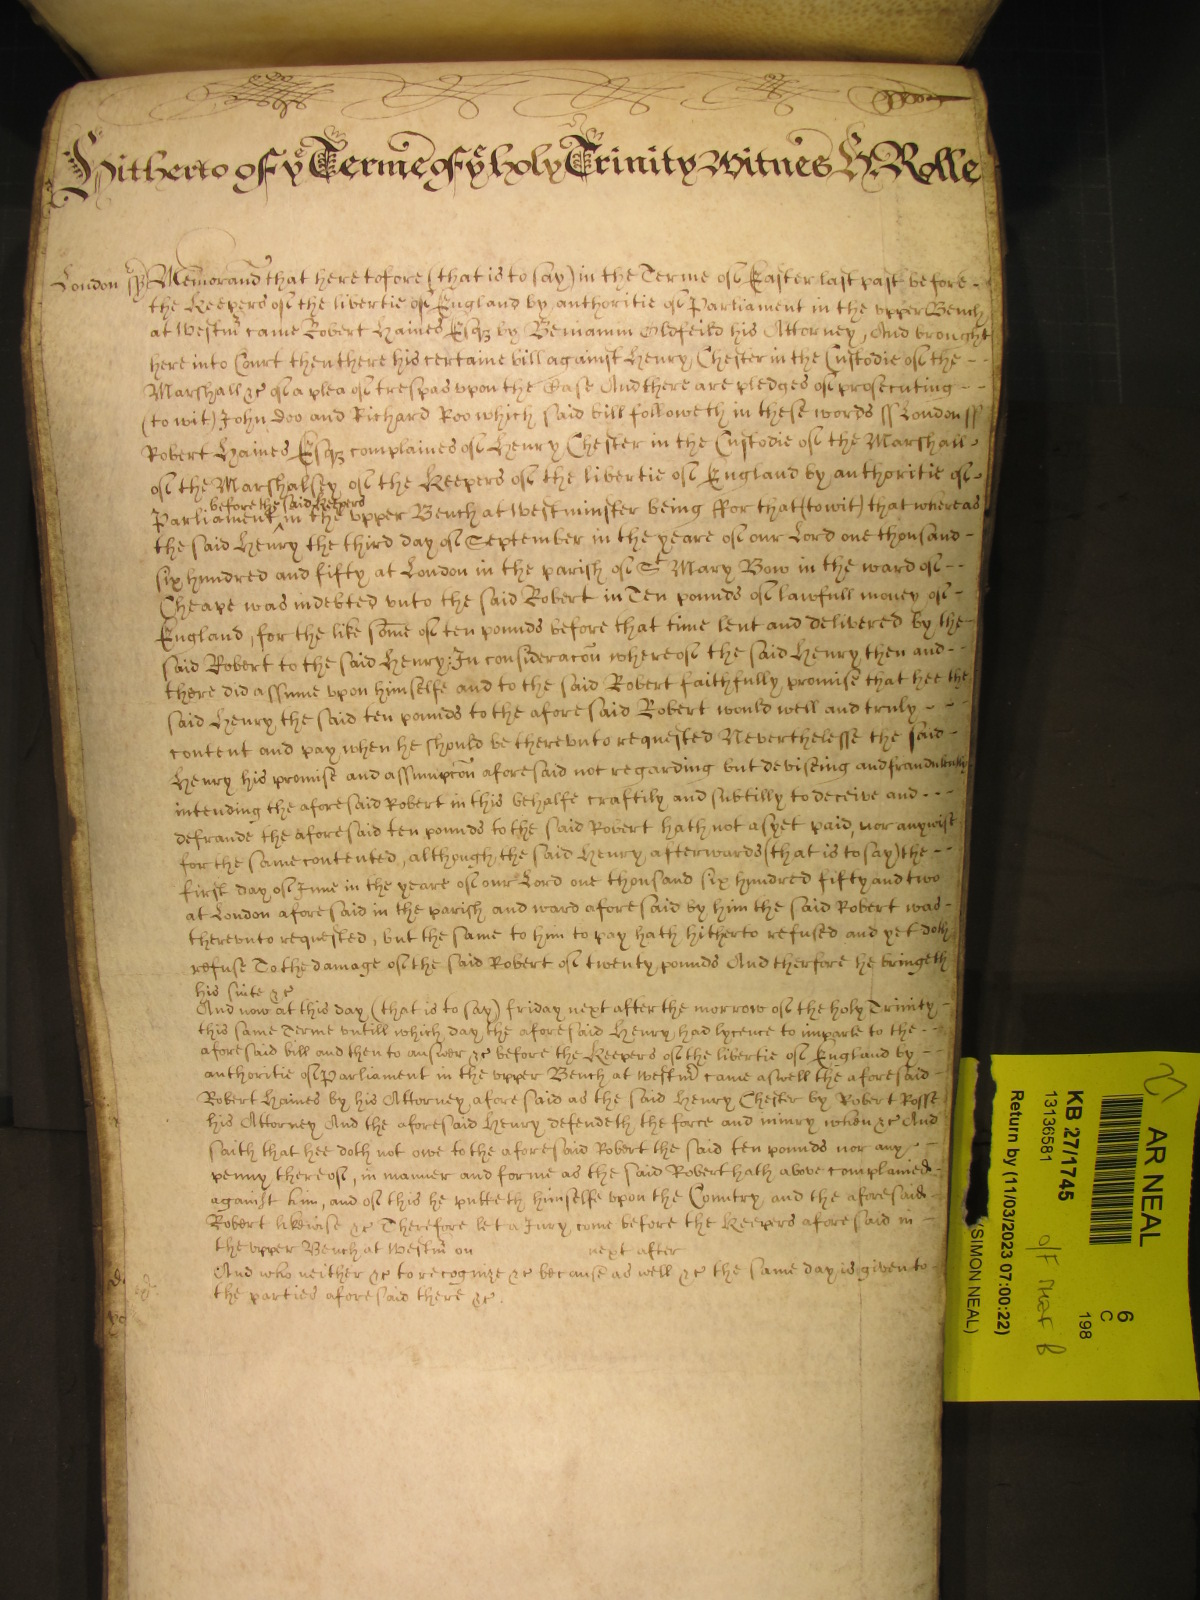 Hitherto of ye Terme of ye holy Trinity Witnes H Rolle
London ss Memorand that heretofore (that is to say) in the Terme of Easter last past before -
the Keepers of the libertie of England by authoritie of Parliament in the upper Bench
at Westmr came Robert Haines Esqz by Beniamin Oldfeild his Attorney, And brought
here into Court then there his certaine bill against Henry Chester in the Custodie of the - -
Marshall &c of a plea of trespas upon the Case And there are pledges of prosecuting - -
(to wit) John Doo and Richard Roo which said bill followeth in these words ss London ss
Robert Haines Esqz complaines of Henry Chester in the Custodie of the Marshall -
of the Marshalsey of the Keepers of the libertie of England by authoritie of -
before the said Keepers
Parliament ^ in the upper Bench at Westminster being ffor that (to wit) that whereas
the said Henry the third day of September in the yeare of our Lord one thousand -
six hundred and fifty at London in the parish of St Mary Bow in the ward of - -
Cheape was indebted unto the said Robert in Ten pounds of lawfull money of -
England, for the like some of ten pounds before that time lent and delivered by the
said Robert to the said Henry: In consideracon whereof the said Henry then and - -
there did assume upon himselfe and to the said Robert faithfully promise that hee the
said Henry the said ten pounds to the aforesaid Robert would well and truly - - -
content and pay when he should be thereunto requested Neverthelesse the said -
Henry his promise and assumpcon aforesaid not regarding but deviseing and fraudulently
intending the aforesaid Robert in this behalfe craftily and subtilly to deceive and - - -
defraude the aforesaid ten pounds to the said Robert hath not as yet paid, nor anywise
for the same contented, although the said Henry afterwards (that is to say) the - -
first day of June in the yeare of our Lord one thousand six hundred fifty and two
at London aforesaid in the parish and ward aforesaid by him the said Robert was -
thereunto requested, but the same to him to pay hath hitherto refused and yet doth
refuse To the damage of the said Robert of twenty pounds And therfore he bringeth
his suite &c
And now at this day (that is to say) friday next after the morrow of the holy Trinity -
this same Terme untill which day the aforesaid Henry had lycence to imparle to the - -
aforesaid bill and then to answer &c before the Keepers of the libertie of England by - -
authoritie of Parliament in the upper Bench at Westmr came aswell the aforesaid -
Robert Haines by his Attorney aforesaid as the said Henry Chester by Robert Rosse
his Attorney And the aforesaid Henry defendeth the force and iniury when &c And
saith that hee doth not owe to the aforesaid Robert the said ten pounds nor any - -
penny thereof, in manner and forme as the said Robert hath above complained -
against him, and of this he putteth himselfe upon the Countrey, and the aforesaid -
Robert likewise &c Therefore let a Jury come before the Keepers aforesaid in -
the upper Bench at Westmr on next after
And who neither &c to recognize &c because as well &c the same day is given to -
the parties aforesaid there &c.
AR NEAL
6
C
198
KB 27/1745
13136581
Return by (11/03/2023 07:00:22)
(SIMON NEAL)